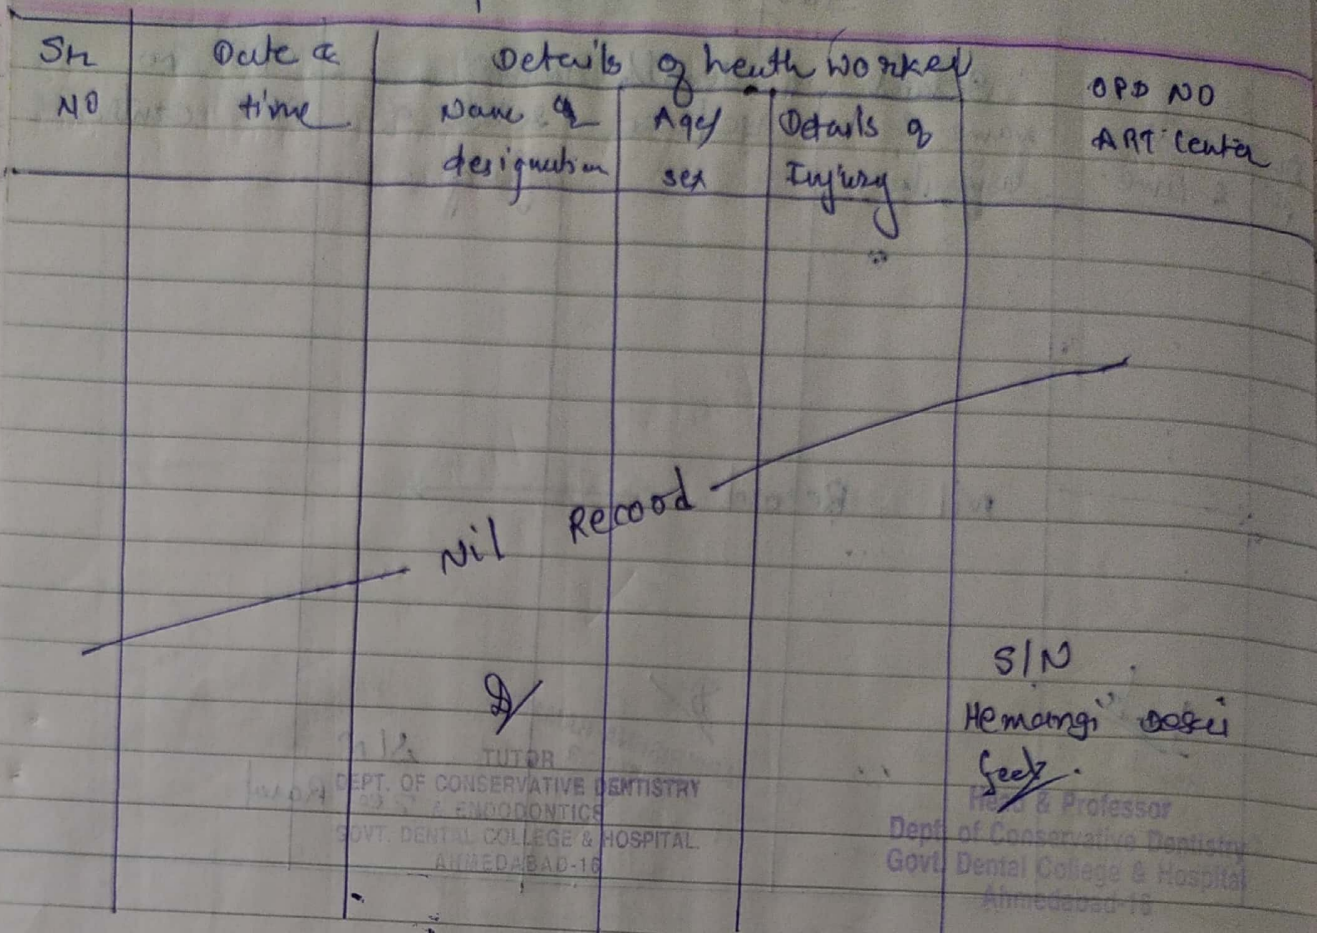 Sr Date & Details of heath worker OPD NO
NO time Name & Age/ Details of ART Center
designation sex Injury
Nil Recood
S/N
Hemangi Desai
TUTOR
DEPT. OF CONSERVATIVE DENTISTRY
& ENDODONTICS
GOVT. DENTAL COLLEGE & HOSPITAL.
AHMEDABAD-16
Head & Professor
Dept. of Conservative Dentistry
Govt. Dental College & Hospital
Ahmedabad-16